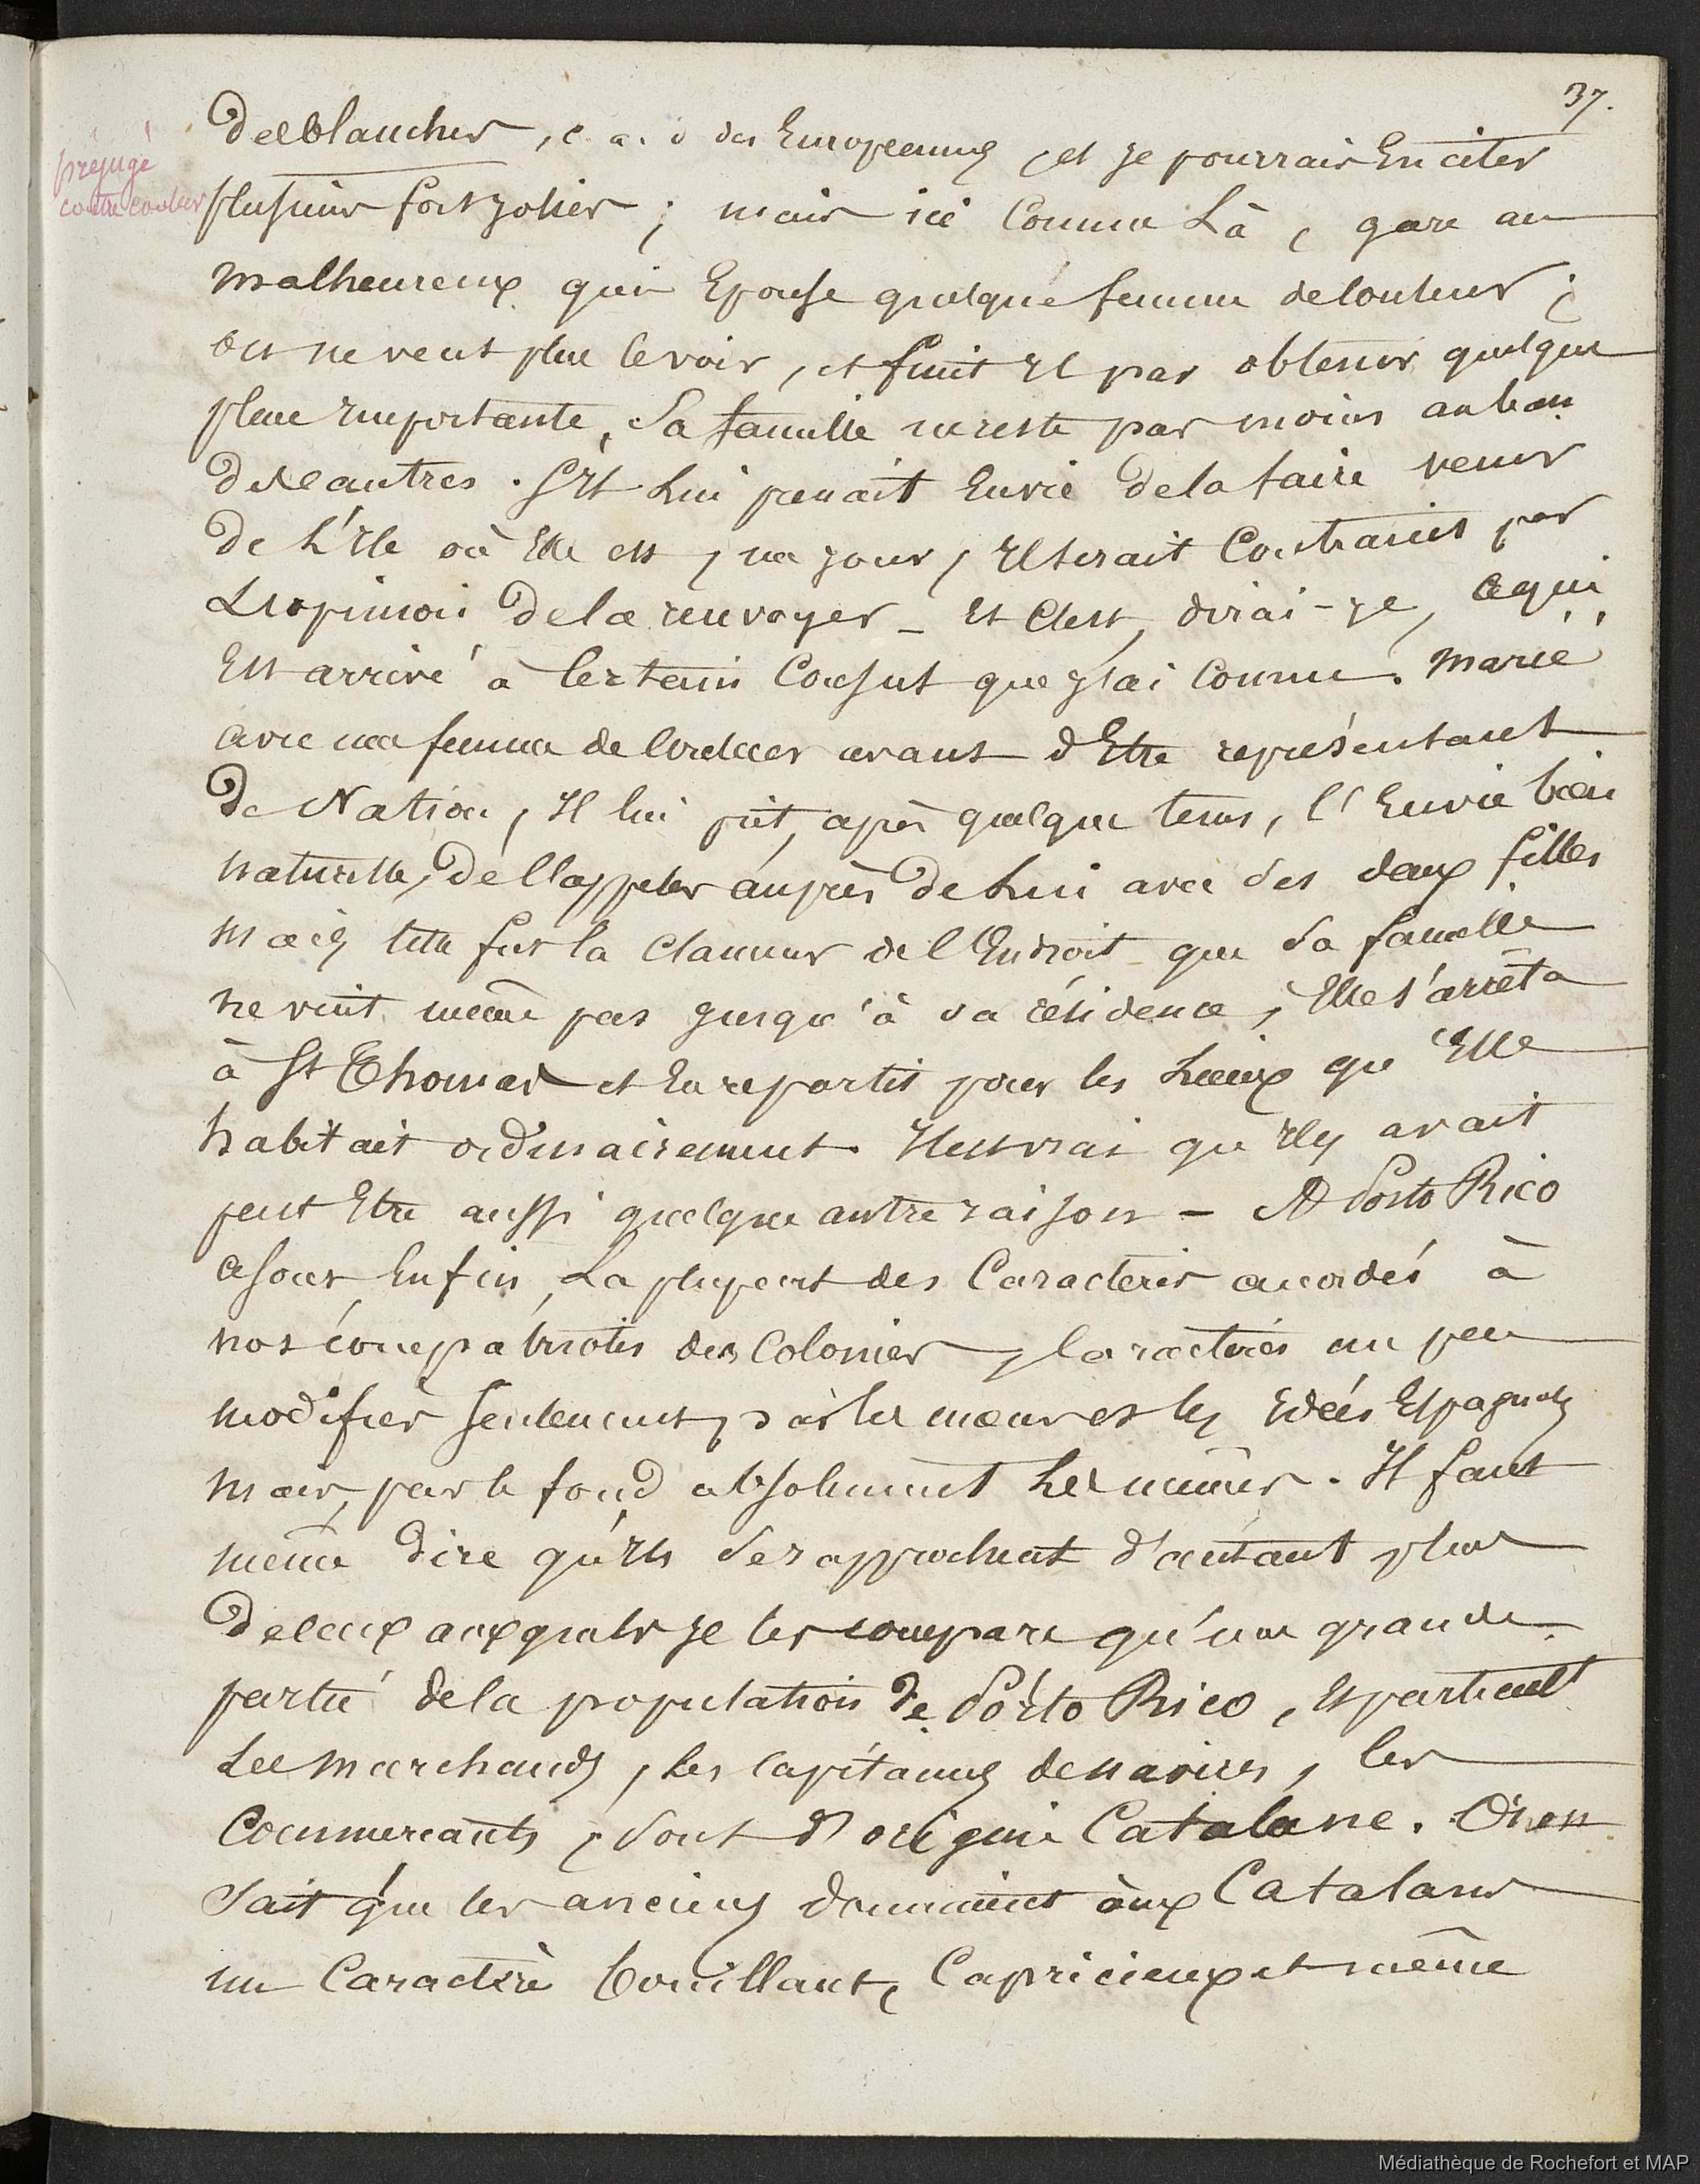 37.
préjugé
contre couleur
des blanches, c. a. d des Européennes, et je pourrais En citer
plusieurs fort jolies ; mais ici Comme Là, gare au
malheureux qui Epouse quelque femme de Couleur ;
on ne veut plus le voir, et finit Il par obtenir quelque
place Importante, Sa famille ne reste pas moins au ban
des autres. S'Il Lui prenait Envie de la faire venir
de L'Ile où Elle est, un jour, Il serait Contraint par
L'opinion de la renvoyer _ Et C'est, dirai-je, ce qui
Est arrivé à Certain Consul que j'ai Connu. Marié
avec une femme de Couleur avant d'Etre représentant
de Nation, Il lui prit, après quelque tems, l'Envie bien
naturelle, de l'appeler auprès de Lui avec ses deux filles
Mais telle fut la Clameur de l'Endroit que sa famille
ne vint même pas jusqu'à sa résidence, Elle s'arrêta
à St Thomas et En repartit pour les Lieux qu'Elle
habitait ordinairement. Il est vrai qu'Il y avait
peut Etre aussi quelque autre raison - A Porto Rico
ce sont Enfin, La plupart des Caractères accordés à
nos compatriotes des Colonies, Caractères un peu
modifiés seulement, par les mœurs et les Idées Espagnoles
mais, par le fond absolument Les mêmes. Il faut
même dire qu'Ils se rapprochent d'autant plus
de ceux auxquels je les compare qu'une grande
partie de la population de Porto Rico, et particult
Les marchands, les Capitaines de navires, les
Commerçants, sont d'origine Catalane. Or on
sait que les anciens donnaient aux Catalans
un Caractère bouillant, Capricieux et même
Médiathèque de Rochefort et MAP